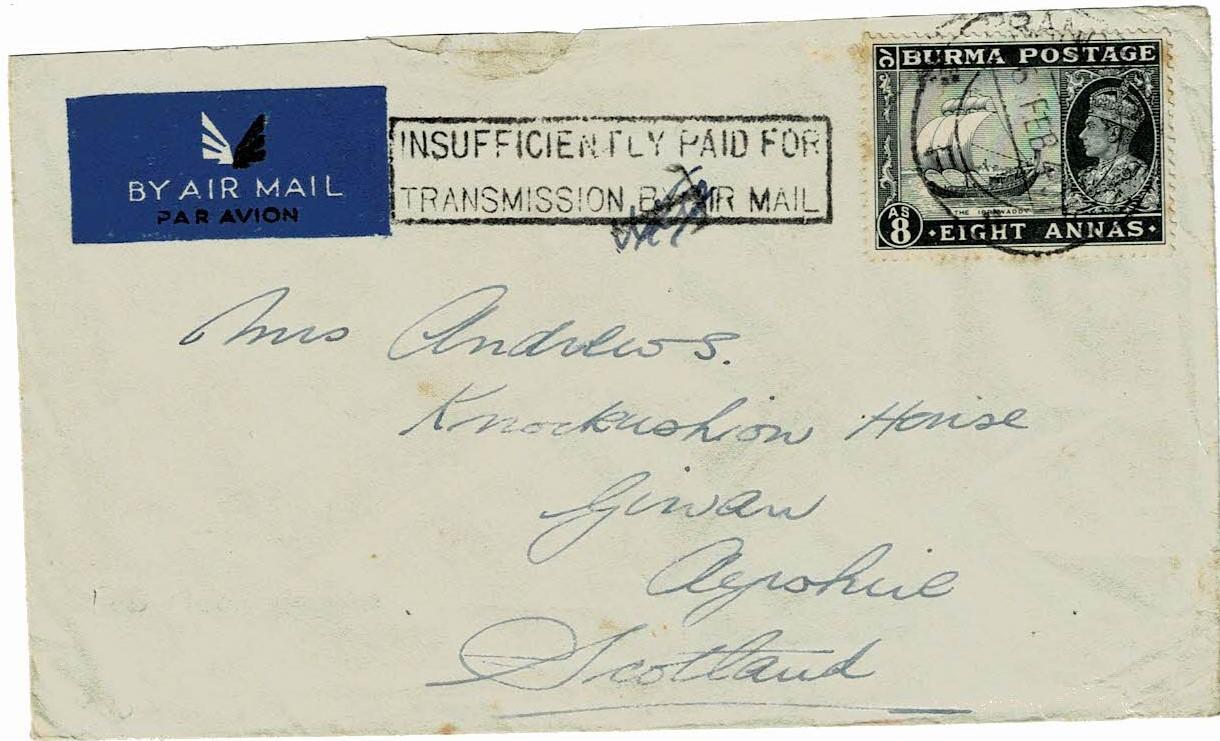 BY AIR MAIL
PAR AVION
INSUFFICIENTLY PAID FOR
TRANSMISSION BY AIR MAIL
BURMA POSTAGE
FEB 4
THE IRRAWADDY
AS
8 · EIGHT ANNAS ·
Mrs Andrews.
Knockushion House
Girvan
Ayrshire
Scotland